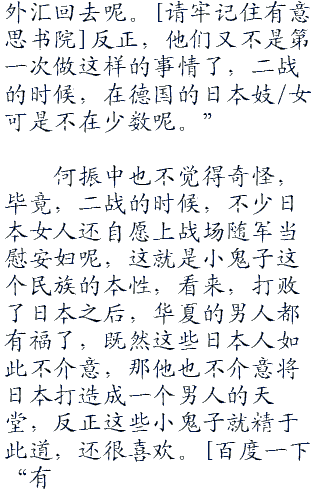 外汇回去呢。[请牢记住有意
思书院]反正，他们又不是第
一次做这样的事情了，二战
的时候，在德国的日本妓/女
可是不在少数呢。”
何振中也不觉得奇怪，
毕竟，二战的时候，不少日
本女人还自愿上战场随军当
慰安妇呢，这就是小鬼子这
个民族的本性，看来，打败
了日本之后，华夏的男人都
有福了，既然这些日本人如
此不介意，那他也不介意将
日本打造成一个男人的天
堂，反正这些小鬼子就精于
此道，还很喜欢。[百度一下
“有